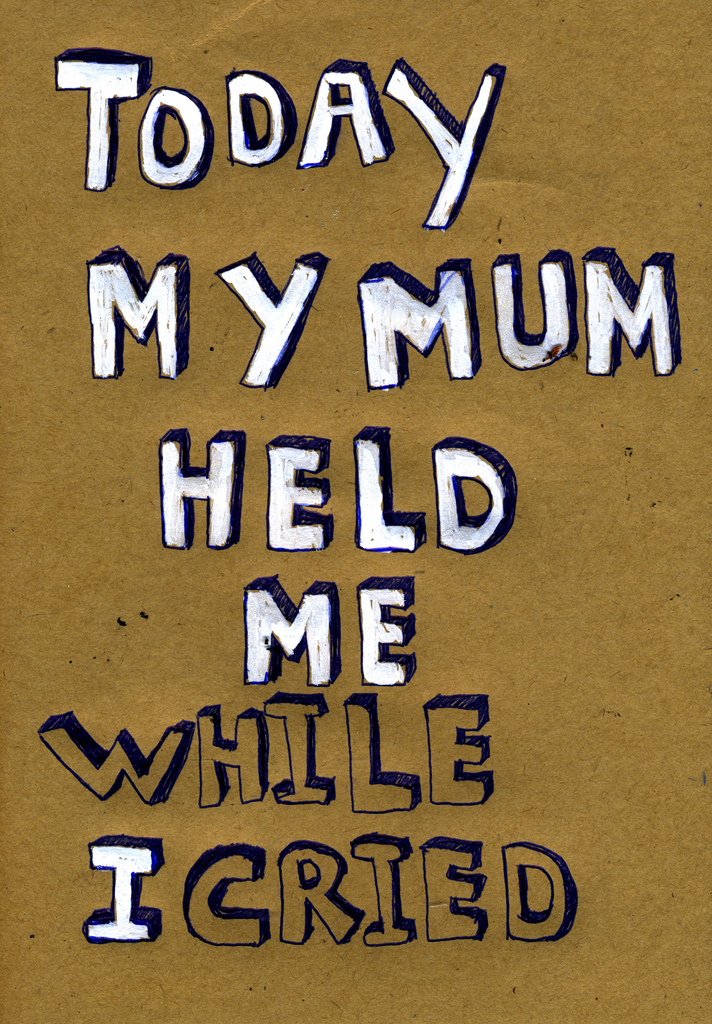 TODAY
MY MUM
HELD
ME
WHILE
I CRIED